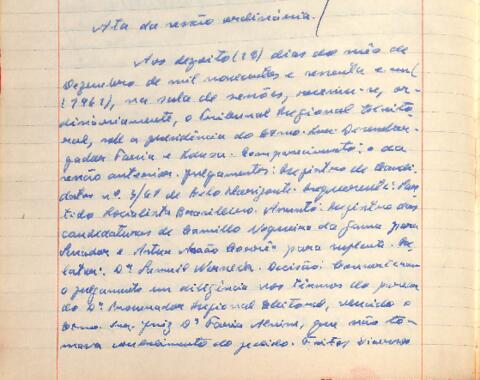 Ata da sessão ordinária.
Aos dezoito (18) dias do mês de
Dezembro de mil novecentos e sessenta e um
(1961), na sala de sessões, reuniu-se, or-
dinàriamente, o Tribunal Regional Eleito-
ral, sob a presidência do Exmo. Snr. Desembar-
gador Faria e Sousa. Comparecimento: o da
sessão anterior. Julgamentos: Registro de Candi-
datos n.º 3/61 de Belo Horizonte. Requerente: Par-
tido Socialista Brasileiro. Assunto: Registro das
candidaturas de Camillo Nogueira da Gama para
Senador e Artur para suplente. Re-
lator: Dr. Decisão: Converteram
o julgamento em diligência nos têrmos do parecer
do Dr. Procurador Regional Eleitoral, vencido o
Exmo. Snr. Juiz Dr. Faria Alvim, que não to-
mava conhecimento do pedido. Feitos Diversos